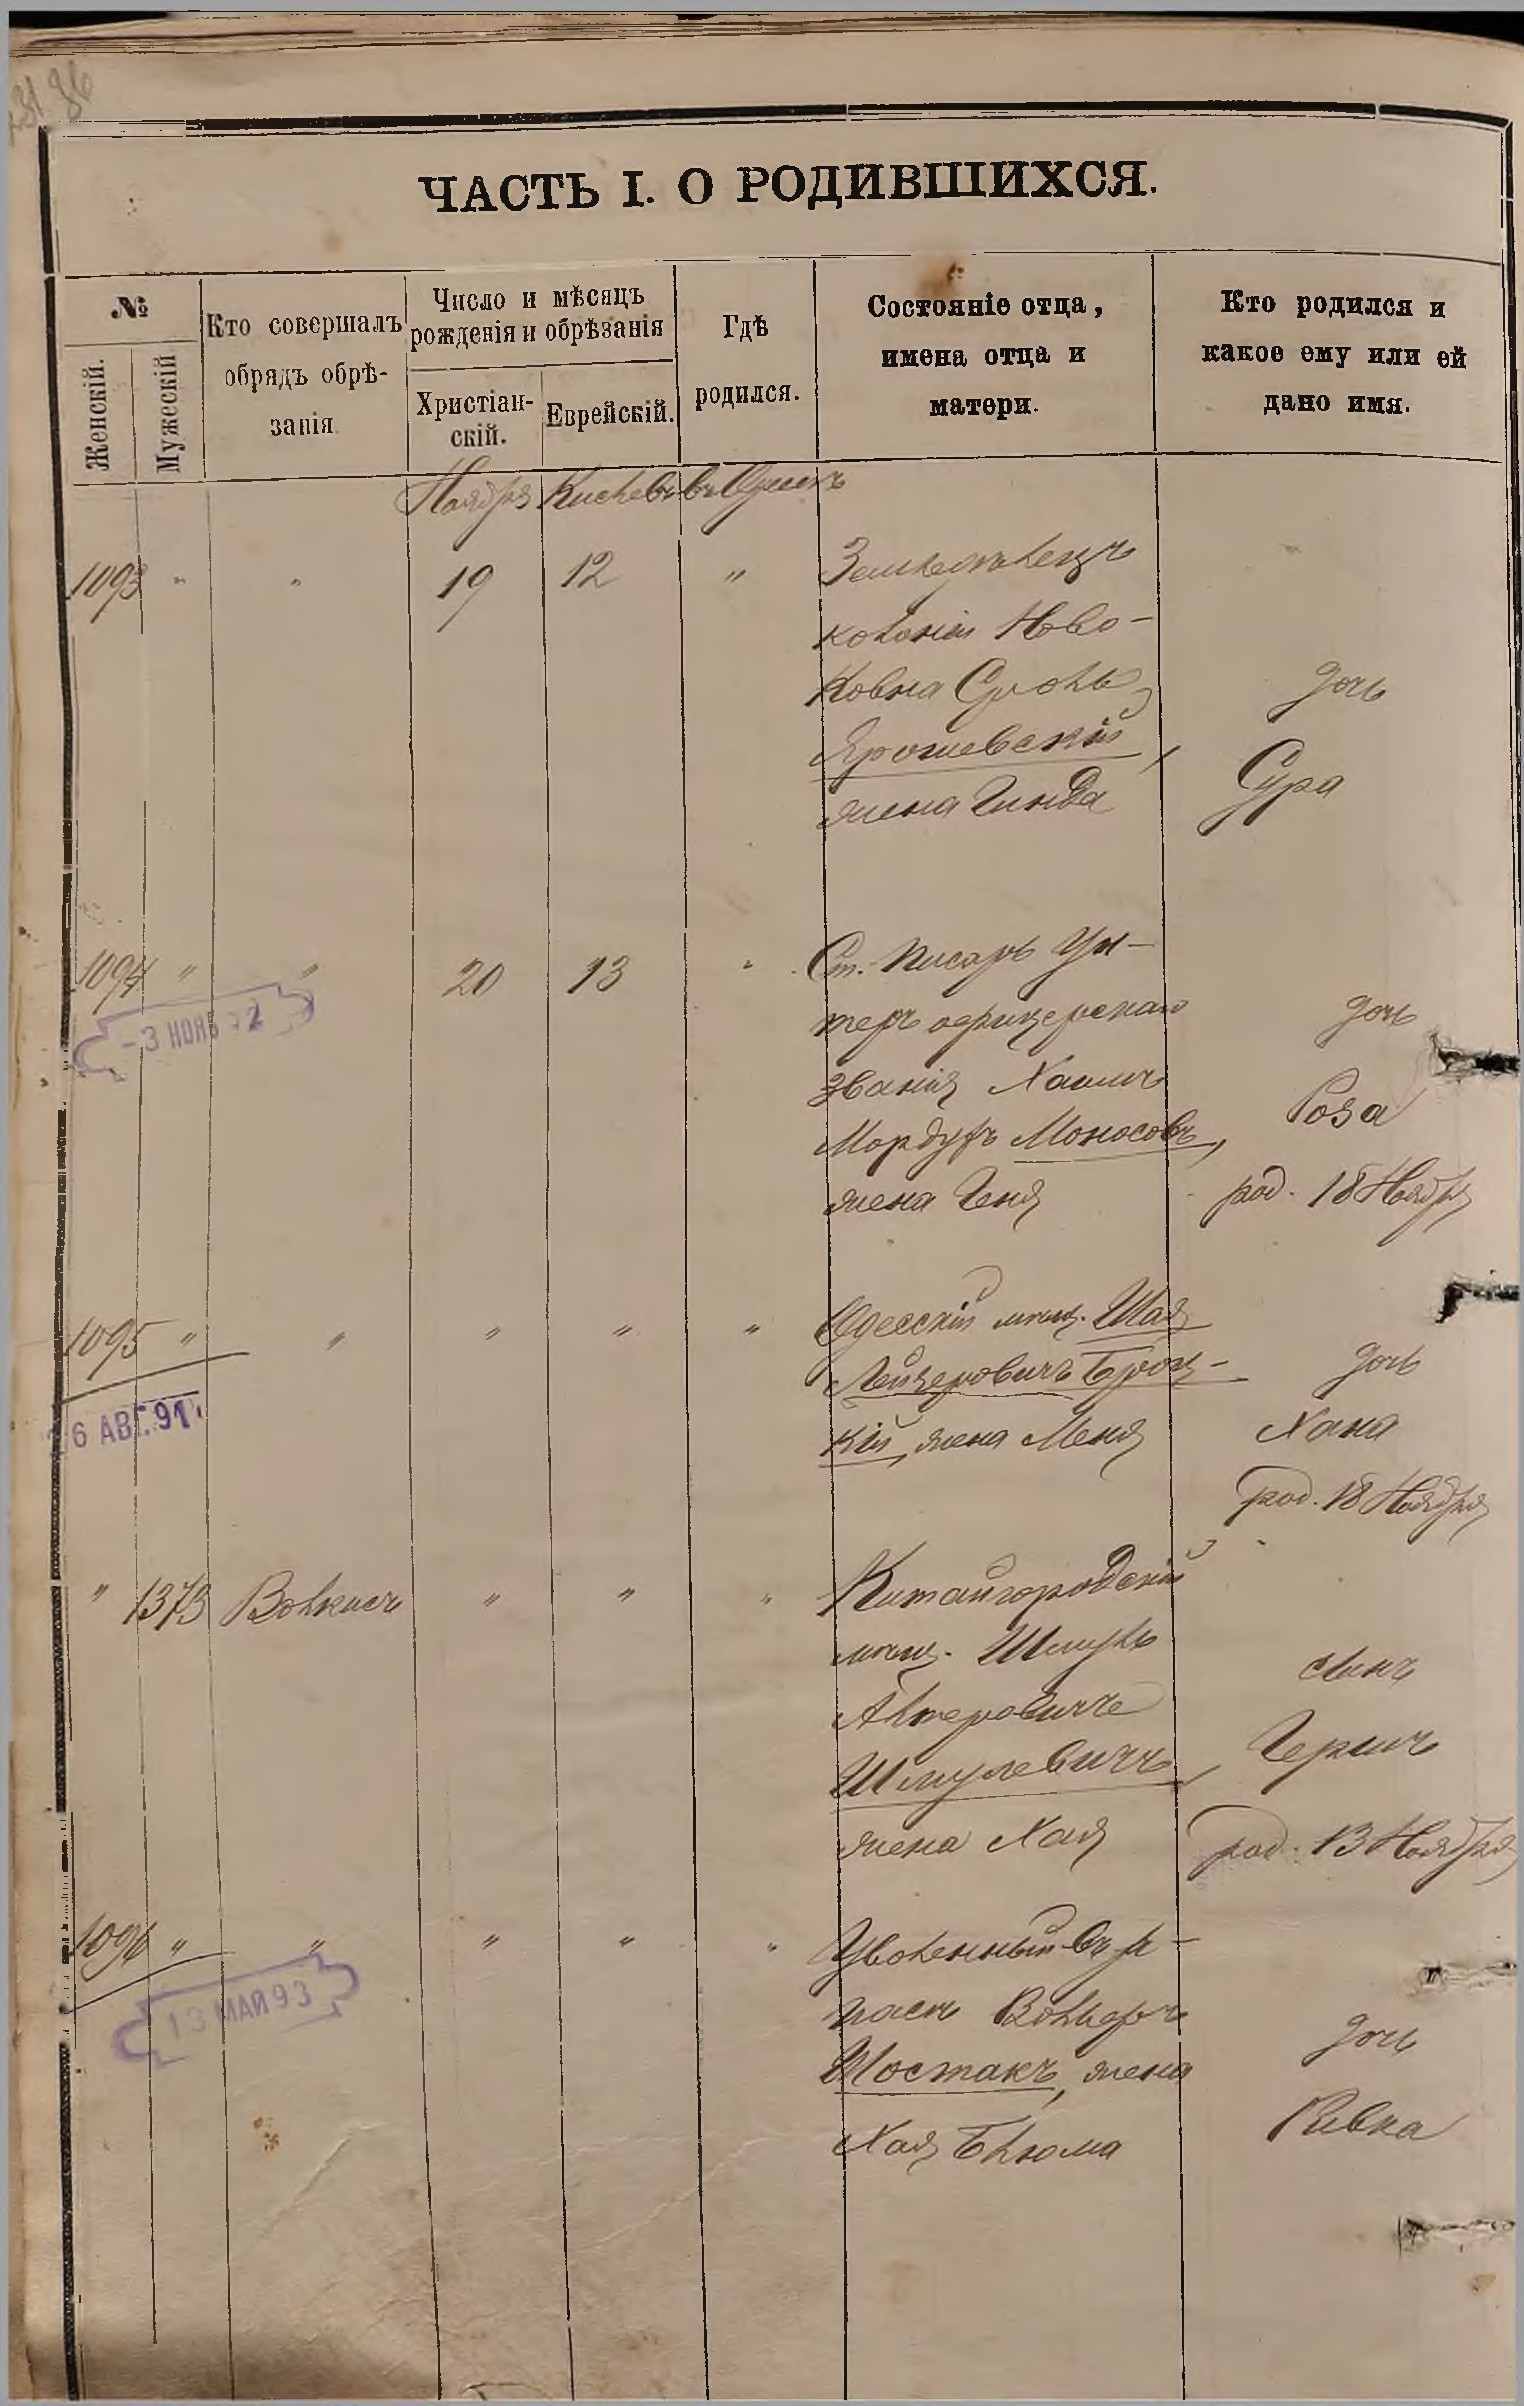 ЧАСТЬ I. О РОДИВШИХСЯ.
№
Женскій.
Мужескій
Кто совершалъ
обрядъ обрѣ-
занія
Число и мѣсяцъ
рожденія и обрѣзанія
Христіан-
скій.
Еврейскій.
Гдѣ
родился.
Состояніе отца,
имена отца и
матери.
Кто родился и
какое ему или ей
дано имя.
Ноября Кислевъ въ Одессѣ
1093 " " 19 12 " Земледѣлецъ
колоніи Ново-
Ковна Сроль
Ярошевскій,
жена Гинда
дочь
Сура
1094 " " 20 13 " Ст. Писарь Ун-
теръ офицерскаго
званія Хаимъ
Мордухъ Моносовъ,
жена Геня
дочь
Роза
род. 18 Ноября
-3 НОЯБ 92
1095 " " " " " Одесскій мѣщ. Шая
Лейзеровичъ Броц-
кій, жена Меня
дочь
Хана
род. 18 Ноября
6 АВГ. 91
" 1373 Волкисъ " " " Китайгородскій
мѣщ. Шмуль
Альтеровичъ
Шмулевичъ,
жена Хая
сынъ
Гершъ
род. 13 Ноября
1096 " " " " " Уволенный въ
Волько
Шостакъ, жена
Хая Блюма
дочь
Ривка
13 МАЙ 93